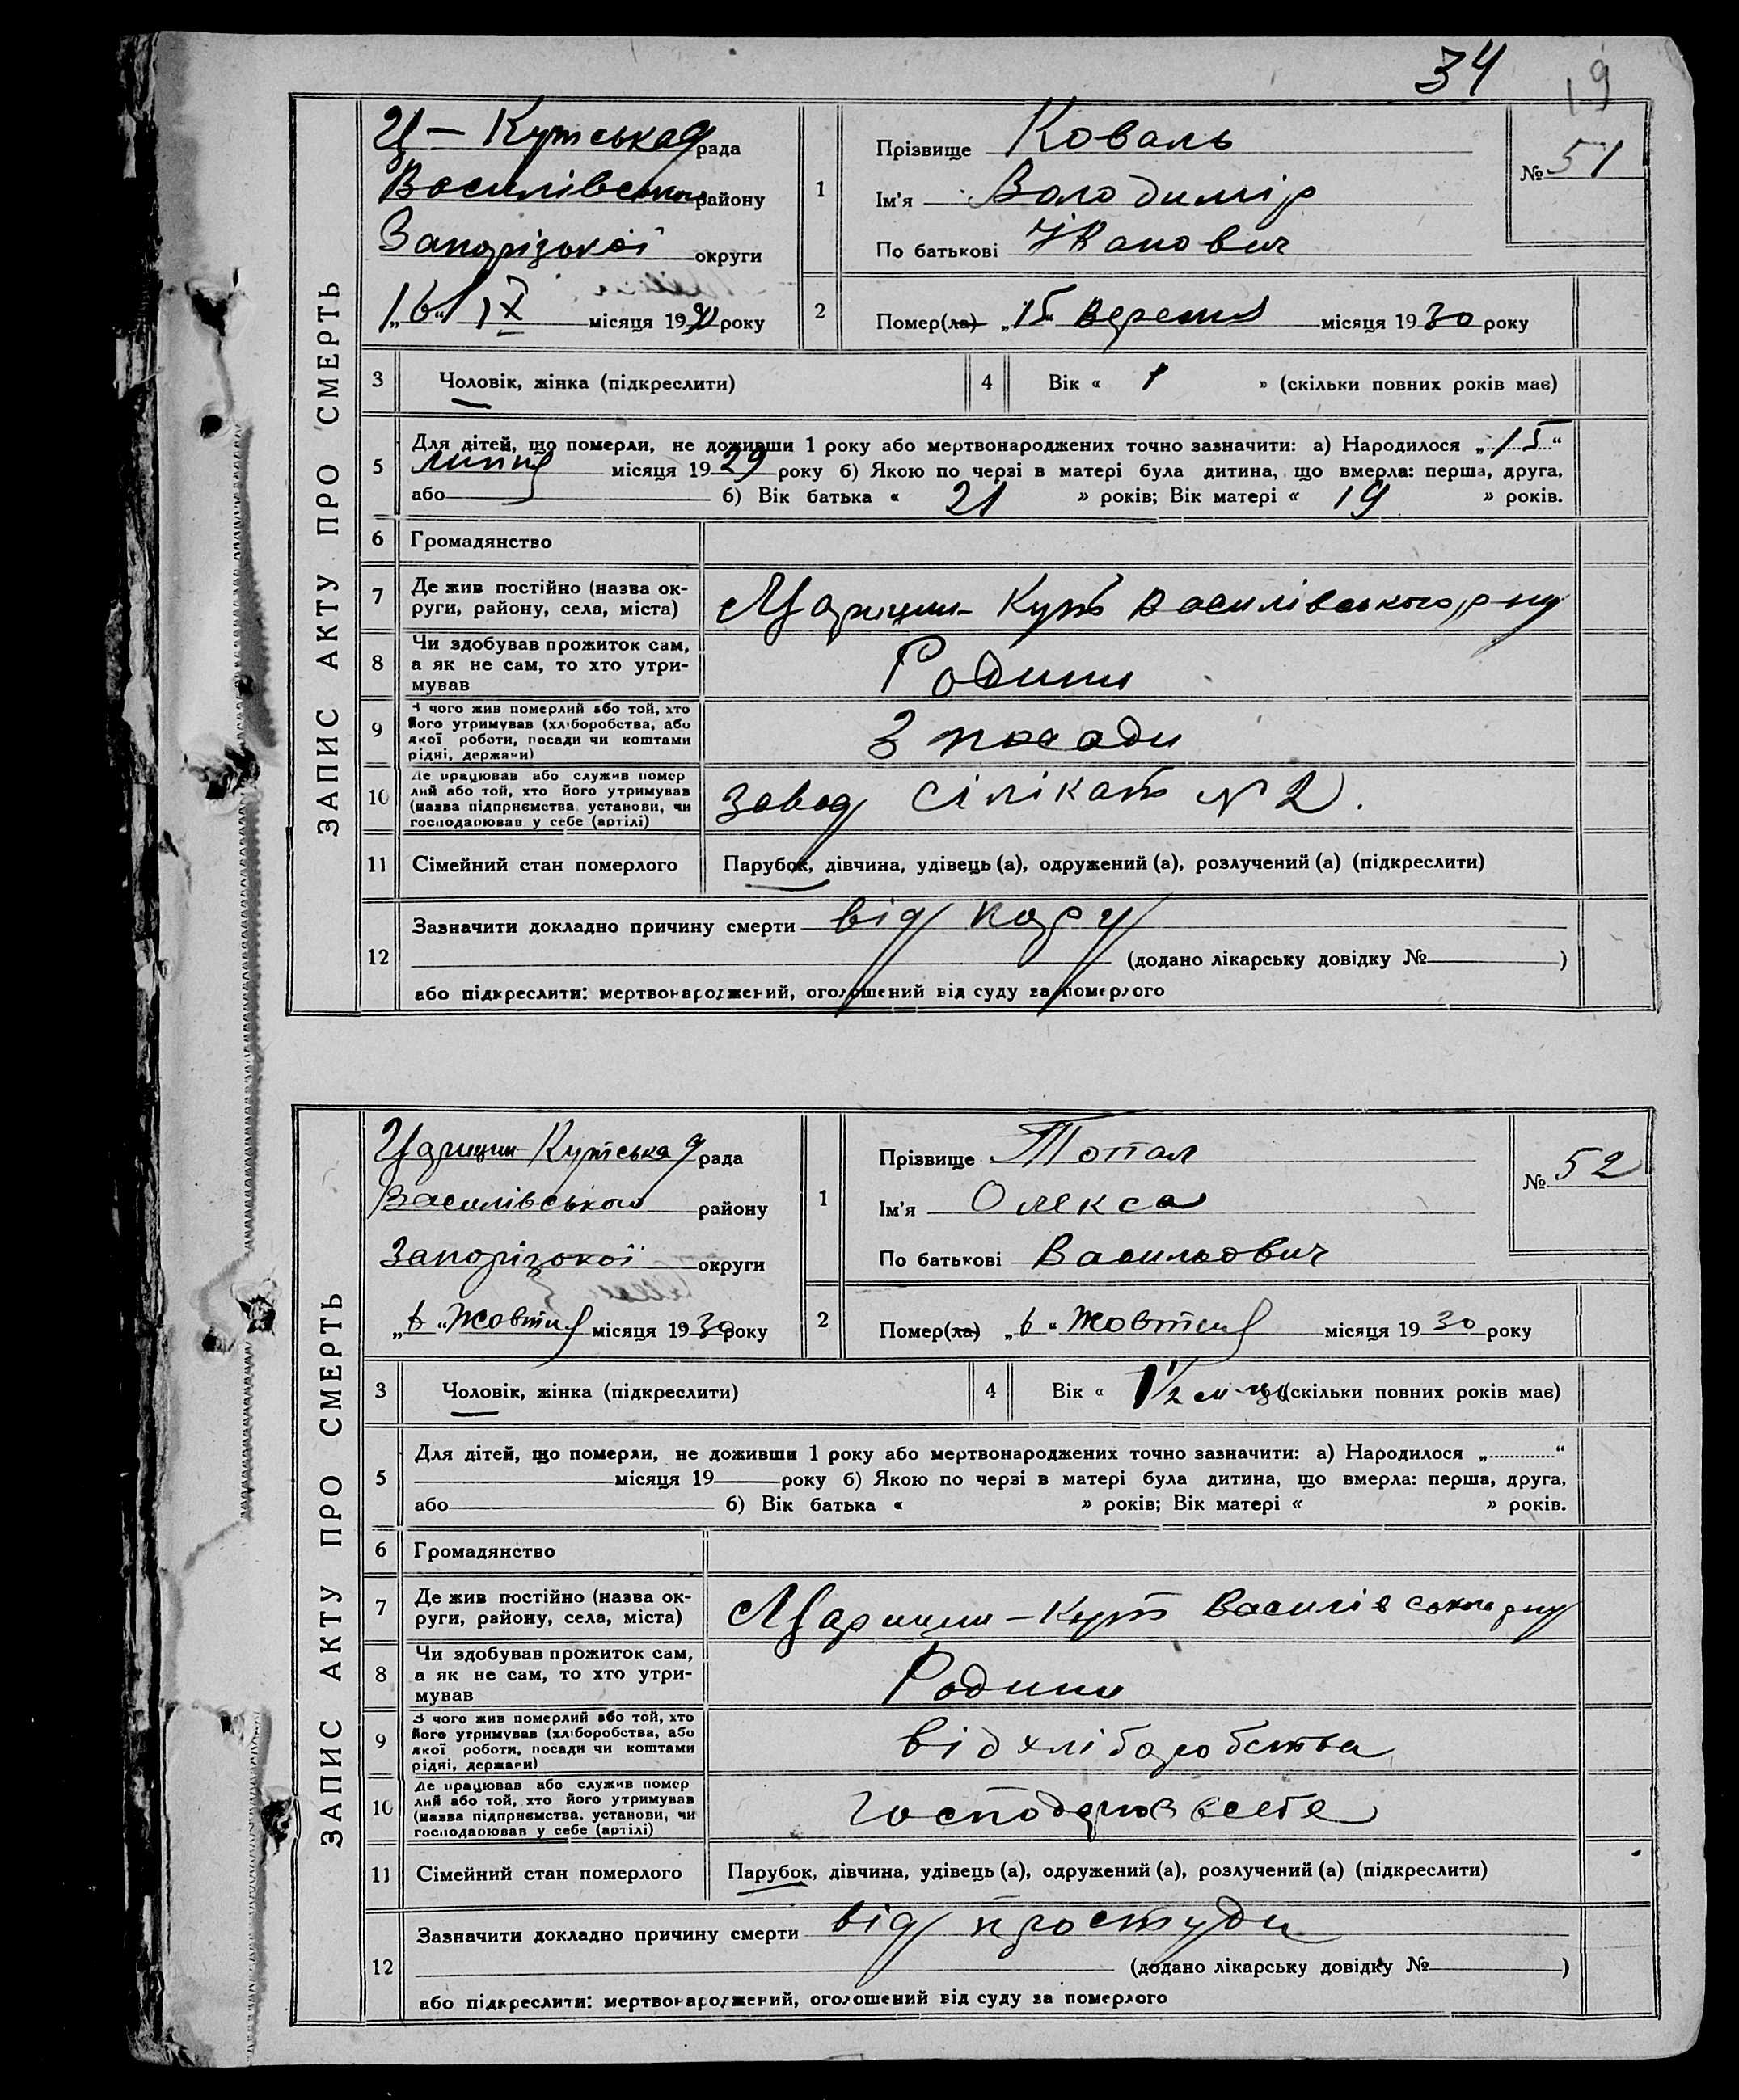 34
19
ЗАПИС АКТУ ПРО СМЕРТЬ
Ц-Кутська рада
Василівського району
Запорізької округи
„16“ IX місяця 1930 року
1
Прізвище Коваль
Ім'я Володимір
По батькові Іванович
№ 51
2
Помер(ла) „15“ Вересня місяця 1930 року
3 Чоловік, жінка (підкреслити)
4 Вік « 1 » (скільки повних років має)
5 Для дітей, що померли, не доживши 1 року або мертвонароджених точно зазначити: а) Народилося „15“
липня місяця 1929 року б) Якою по черзі в матері була дитина, що вмерла: перша, друга,
або б) Вік батька « 21 » років; Вік матері « 19 » років.
6 Громадянство
7 Де жив постійно (назва ок-
руги, району, села, міста)
Царицин-Кут Василівського р-ну
8 Чи здобував прожиток сам,
а як не сам, то хто утри-
мував
Родина
9 З чого жив померлий або той, хто
його утримував (хліборобства, або
якої роботи, посади чи коштами
рідні, держави)
З посади
10 Де працював або служив помер
лий або той, хто його утримував
(назва підприємства, установи, чи
господарював у себе (артілі)
Завод Сілікат № 2.
11 Сімейний стан померлого
Парубок, дівчина, удівець (а), одружений (а), розлучений (а) (підкреслити)
12 Зазначити докладно причину смерти від кору
(додано лікарську довідку № )
або підкреслити: мертвонароджений, оголошений від суду за померлого
ЗАПИС АКТУ ПРО СМЕРТЬ
Царицин-Кутська рада
Василівського району
Запорізької округи
„6“ Жовтня місяця 1930 року
1
Прізвище Топал
Ім'я Олекса
По батькові Васильович
№ 52
2
Помер(ла) „6“ Жовтня місяця 1930 року
3 Чоловік, жінка (підкреслити)
4 Вік « 1½ м-ця (скільки повних років має)
5 Для дітей, що померли, не доживши 1 року або мертвонароджених точно зазначити: а) Народилося „ “
місяця 19 року б) Якою по черзі в матері була дитина, що вмерла: перша, друга,
або б) Вік батька « » років; Вік матері « » років.
6 Громадянство
7 Де жив постійно (назва ок-
руги, району, села, міста)
Царицин-Кут Василівського р-ну
8 Чи здобував прожиток сам,
а як не сам, то хто утри-
мував
Родина
9 З чого жив померлий або той, хто
його утримував (хліборобства, або
якої роботи, посади чи коштами
рідні, держави)
від хліборобства
10 Де працював або служив помер
лий або той, хто його утримував
(назва підприємства, установи, чи
господарював у себе (артілі)
Господарюв в себе
11 Сімейний стан померлого
Парубок, дівчина, удівець (а), одружений (а), розлучений (а) (підкреслити)
12 Зазначити докладно причину смерти від простуди
(додано лікарську довідку № )
або підкреслити: мертвонароджений, оголошений від суду за померлого